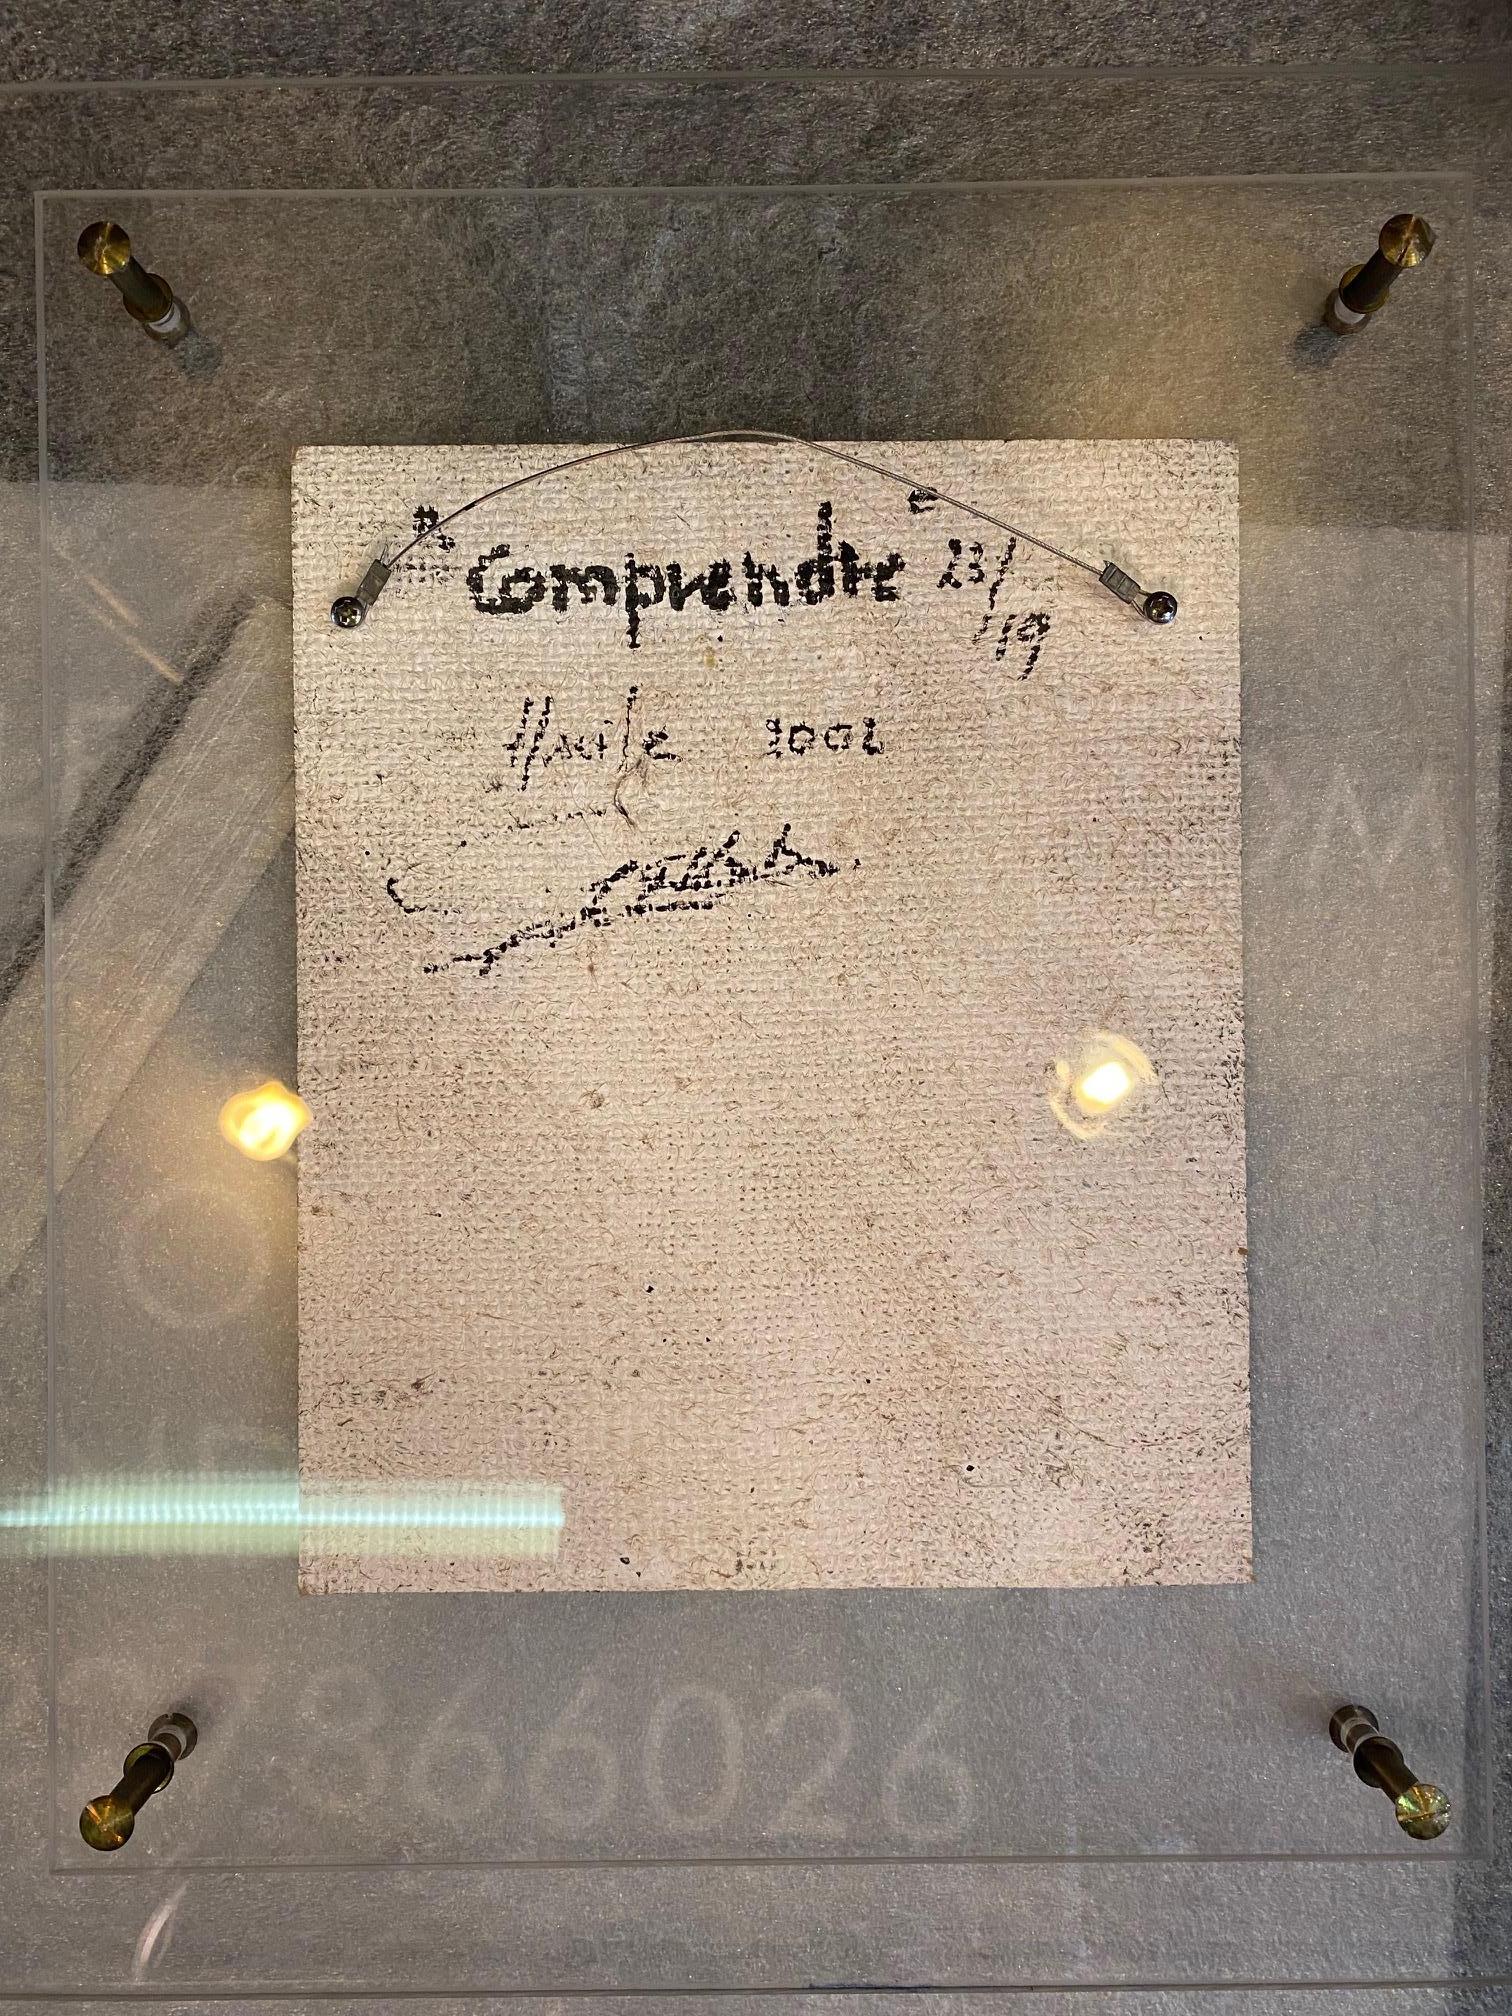 "Comprendre" 23/
119
Huile 2002
786026